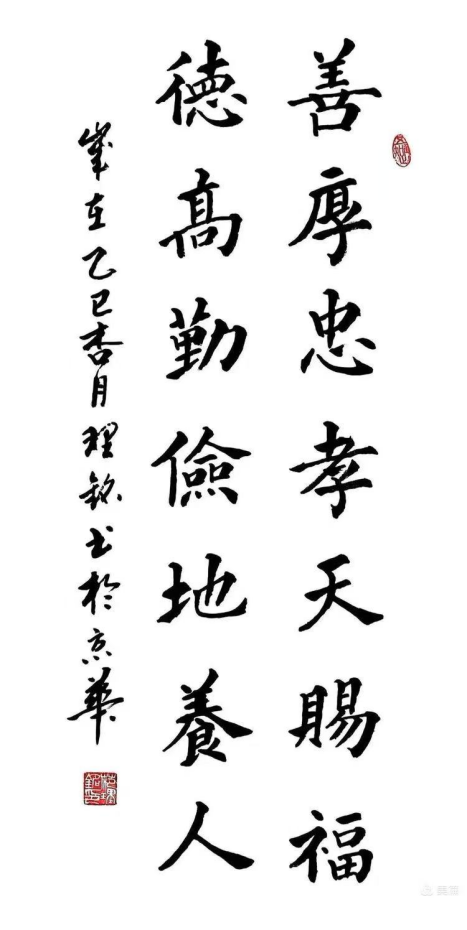 善厚忠孝天賜福
德高勤儉地養人
歲在乙巳杏月理銘书於京華